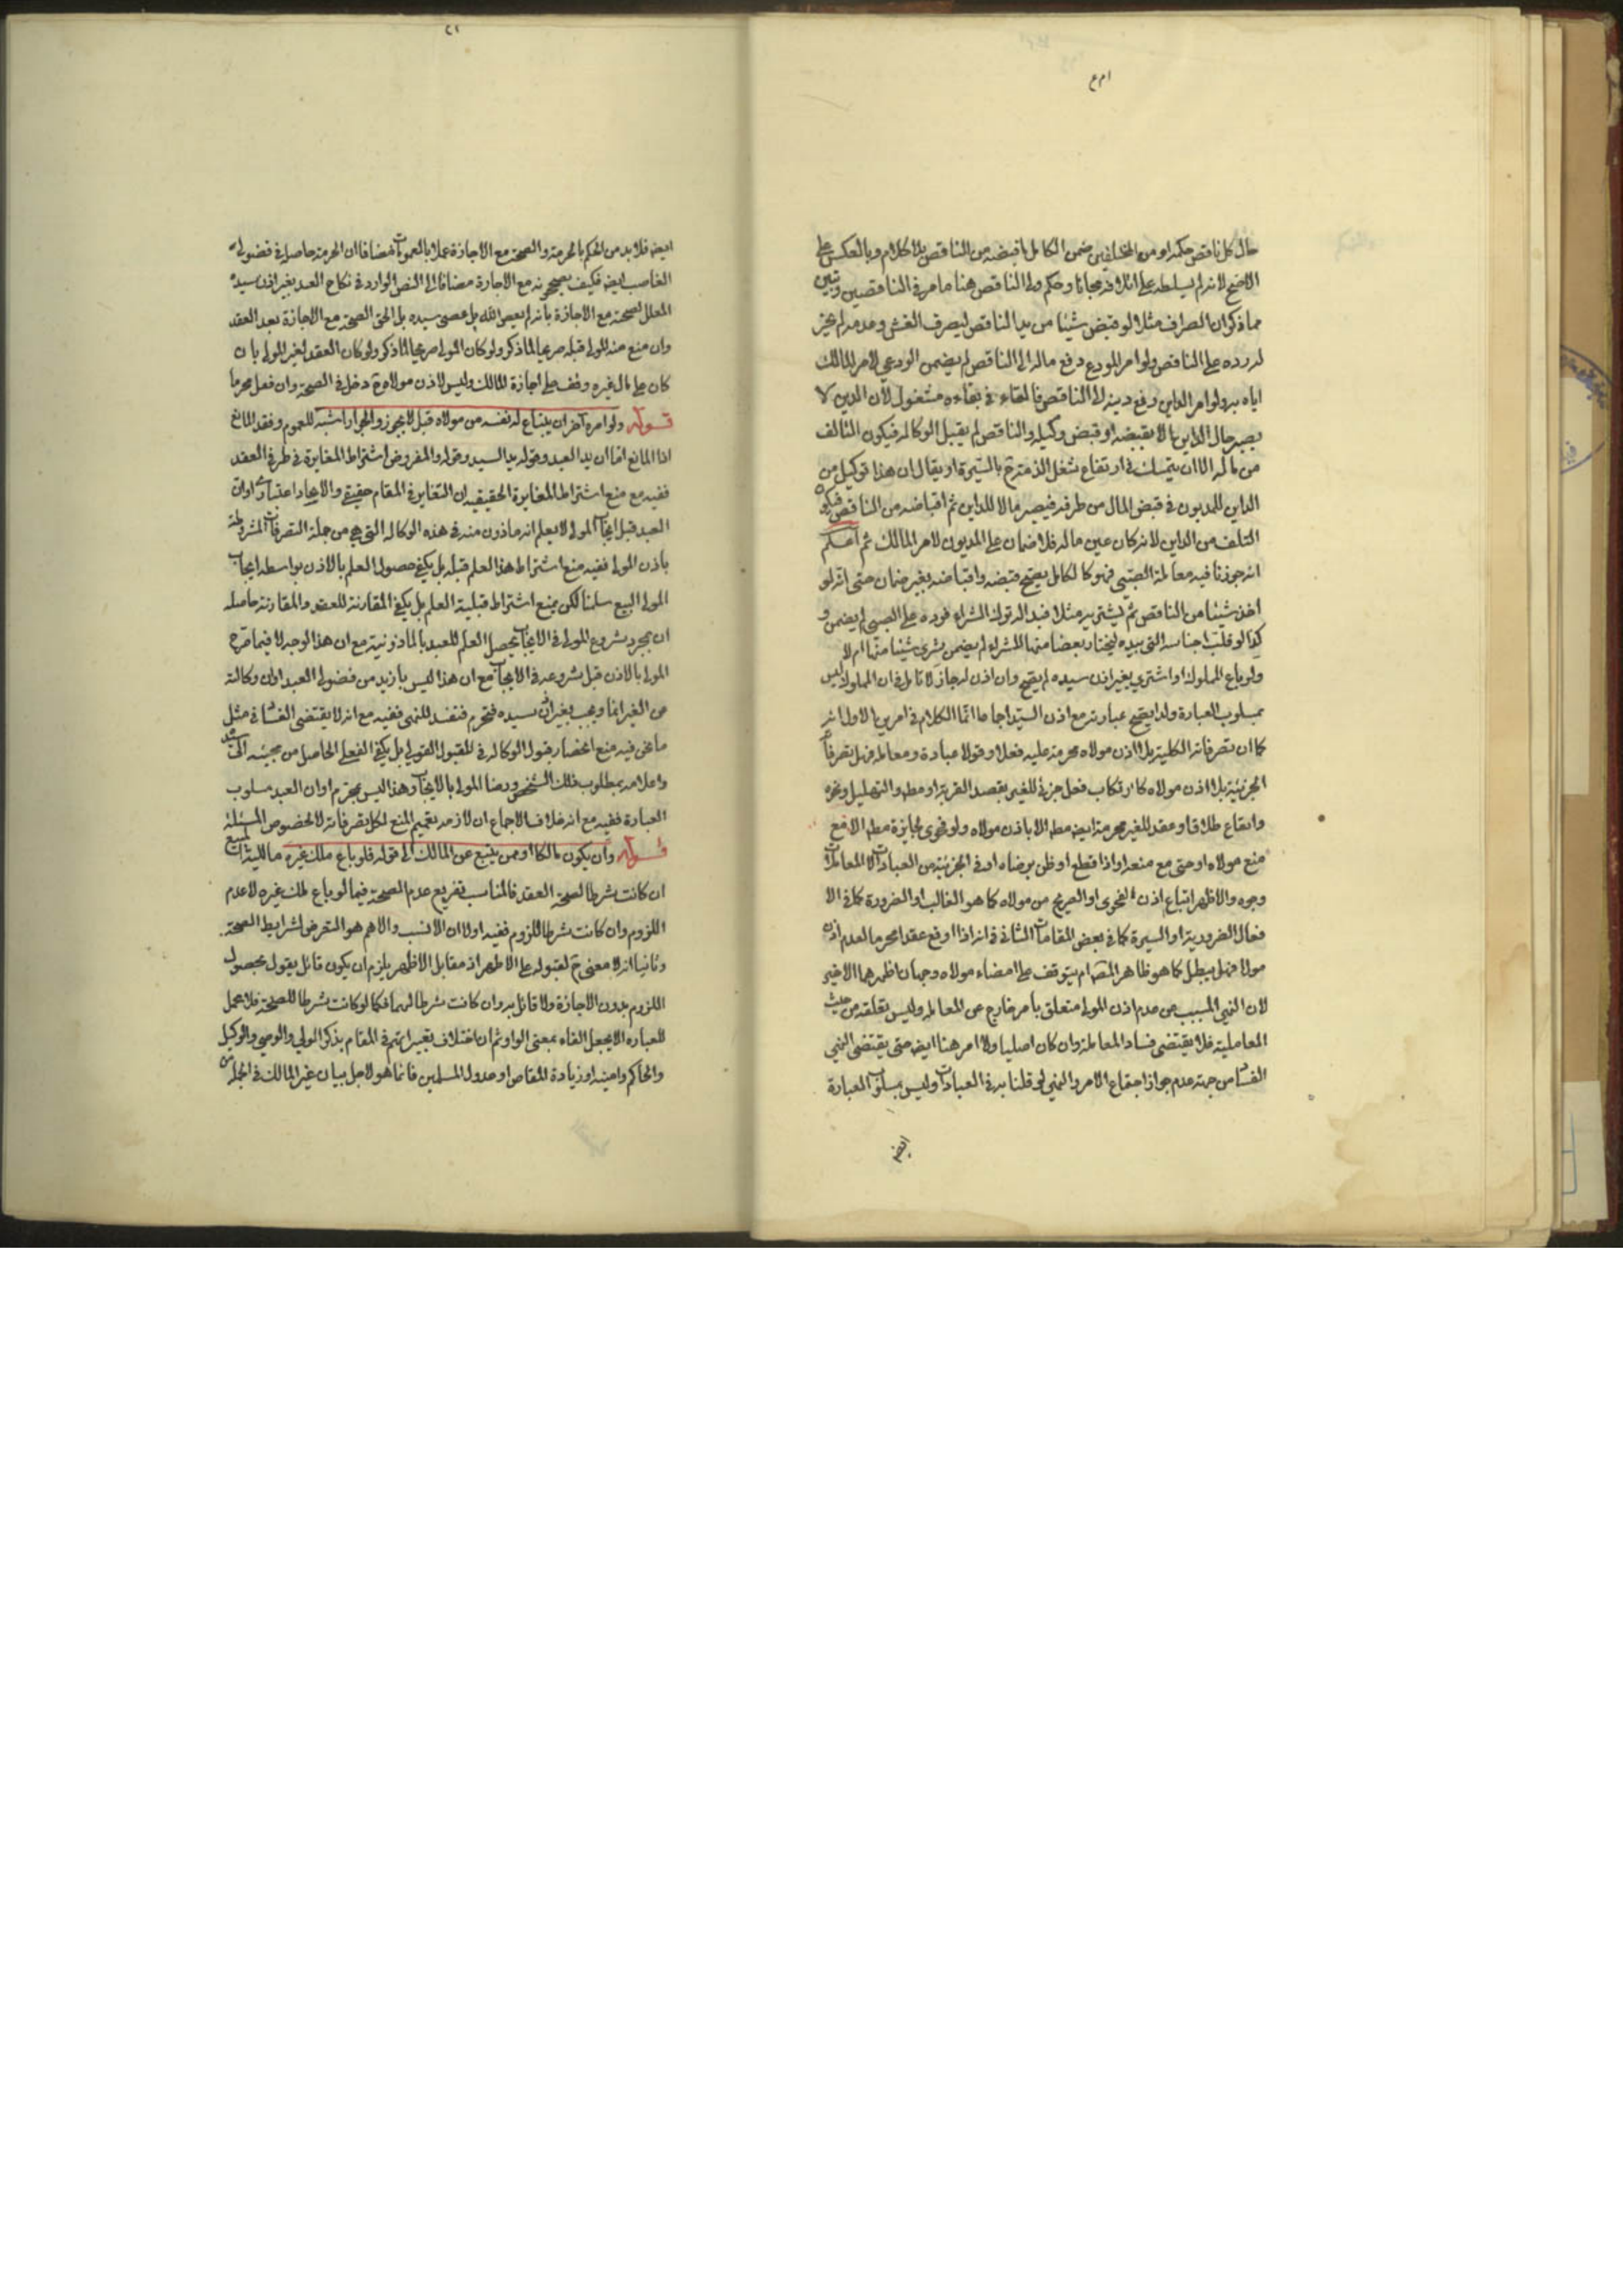 حال كل ناقص حكمه او من المختلفين ضمن الكامل ما قبضه من الناقص بلا كلام وبالعكس على
الاصح لانه لم يسلطه على اتلافه مجانا وحكم ولى الناقص هنا ما مر فى الناقصين وتبين
مما ذكر ان الصراف مثلا لو قبض شيئا من يد الناقص ليصرف الغش وعدمه لم يجز
له رده على الناقص ولو امر المودع دفع ماله الى الناقص لم يضمن الودعي لامر المالك
اياه به ولو امر الداين دفع دينه الى الناقص فالقاء فى بقاءه مشغول لان الدين لا
يصير حال الداين الا بقبضه او قبض وكيله والناقص لم يقبل الوكالة فيكون التالف
من ماله الا ان يتمسك فى ارتفاع شغل الذمة ح بالسيرة او يقال ان هذا توكيل من
الداين للمديون فى قبض المال من طرفه فيصير مالا للداين ثم اقباضه من الناقص فيكون
التلف من الداين لانه كان عين ماله فلا ضمان على المديون لامر المالك ثم اعلم
انه جوزنا فيه معاملة الصبي فهو كالكامل يصح قبضه واقباضه بغير ضمان حتى انه لو
اخذ شيئا من الناقص ثم ليشتريه مثلا فبدا له ترك الشراء فرده على الصبي لم يضمن و
كذا لو قلب اجناسه التى بيده ليختار بعضا منها للشراء لم يضمن شرى شيئا منها ام لا
ولو باع المملوك او اشترى بغير اذن سيده لم يصح وان اذن له جاز لا تامل فى ان المملوك ليس
بمسلوب العبارة ولذا يصح عبارته مع اذن السيد اجماعا انما الكلام فى امرين الاول انه
كما ان تصرفاته الكلية بلا اذن مولاه محرمة عليه فعلا وقولا عبادة ومعاملة فهل تصرفاته
الجزئية بلا اذن مولاه كارتكاب فعل جزئى للغير بقصد القربة او مطه والتهليل ونحوه
وايقاع طلاق او عقد للغير محرمة ايضه مطه الا باذن مولاه ولو فحوى او جايزة مطه الا مع
منع مولاه او حتى مع منعه او اذا قطع او ظن برضاه او فى الجزئية من العبادات لا المعاملات
وجوه والاظهر اتباع اذن الفحوى او الصريح من مولاه كما هو الغالب او الضرورة كما فى الا
فعال الضرورية او السيرة كما فى بعض المقامات الثانى فى انه اذا اوقع عقدا محرما لعدم اذن
مولاه فهل يبطل كما هو ظاهر المتن ام يتوقف على امضاء مولاه وجهان اظهرهما الاخير
لان النهى المسبب عن عدم اذن المولى متعلق بامر خارج عن المعاملة وليس تعلقه من حيث
المعاملية فلا يقتضى فساد المعاملة وان كان اصليا ولا امر هنا ايضه حتى يقتضى النهى
الفساد من جهة عدم جواز اجتماع الامر والنهى لو قلنا به فى العبادات وليس بمسلوب العبارة
ايضه
ايضه فلا بد من الحكم بالحرمة والصحة مع الاجازة عملا بالعمومات مضافا ان الحرمة حاصلة فى فضولى
الغاصب ايضه فكيف يصححونه مع الاجازة مضافا الى النص الوارد فى نكاح العبد بغير اذن سيده
المعلل لصحته مع الاجازة بانه لم يعص الله بل عصى سيده بل الحق الصحة مع الاجازة بعد العقد
وان منع منه المولى قبله صريحا لما ذكر ولو كان المولى صريحا لما ذكر ولو كان العقد لغير المولى بان
كان على مال غيره وقف على اجازة المالك وليس لاذن مولاه ح دخل فى الصحة وان فعل محرما
قوله ولو امره آخر ان يبتاع له نفسه من مولاه قبل لا يجوز والجواز اشبه للعموم وفقد المانع
اذا المانع اما ان يد العبد وقوله يد السيد وقوله والمفروض اشتراط المغايرة فى طرفى العقد
ففيه مع منع اشتراط المغايرة الحقيقيه ان التغاير فى المقام حقيقى والاتحاد اعتبارى او ان
العبد قبل ايجاب المولى لا يعلم انه ماذون منه فى هذه الوكالة التى هى من جملة التصرفات المشروطة
باذن المولى ففيه منع اشتراط هذا العلم قبله بل يكفى حصول العلم بالاذن بواسطة ايجاب
المولى البيع سلمنا لكن نمنع اشتراط قبلية العلم بل يكفى المقارنة للعقد والمقارنة حاصلة
ان بمجرد شروع المولى فى الايجاب يحصل العلم للعبد بالماذونية مع ان هذا الوجه لا فيما صرح
المولى بالاذن قبل شروعه فى الايجاب مع ان هذا ليس بازيد من فضولى العبد او ان وكالته
عن الغير انما وجب بغير اذن سيده فتحرم فتفسد للنهى ففيه مع انه لا يقتضى الفساد فى مثل
ما نحن فيه منع انحصار قبول الوكالة فى القبول القولى بل يكفى الفعلى الحاصل من مجيئه الى سيده
واعلامه بمطلوب ذلك الشخص ورضا المولى بالايجاب وهذا ليس بمحرم او ان العبد مسلوب
العبارة ففيه مع انه خلاف الاجماع ان لازمه تعميم المنع لكل تصرفاته لا لخصوص المسئلة
قوله وان يكون مالكا او ممن يبيع عن المالك الى قوله فلو باع ملك غيره مالكية البايع للمبيع
ان كانت شرطا لصحة العقد فالمناسب تفريع عدم الصحة فيما لو باع ملك غيره لا عدم
اللزوم وان كانت شرطا للزوم ففيه اولا ان الانسب والاهم هو التعرض لشرايط الصحة
وثانيا انه لا معنى ح لقوله على الاظهر اذ مقابل الاظهر يلزم ان يكون قائل يقول بحصول
اللزوم بدون الاجازة ولا قائل به وان كانت شرطا لهما فكما لو كانت شرطا للصحة فلا محل
للعباره الا بجعل الفاء بمعنى الواو ثم ان اختلاف تعبيراتهم فى المقام بذكر الولى والوصى والوكيل
والحاكم وامينه او زيادة المقاص او عدول المسلمين فانما هو لاجل بيان غير المالك فى الجملة من